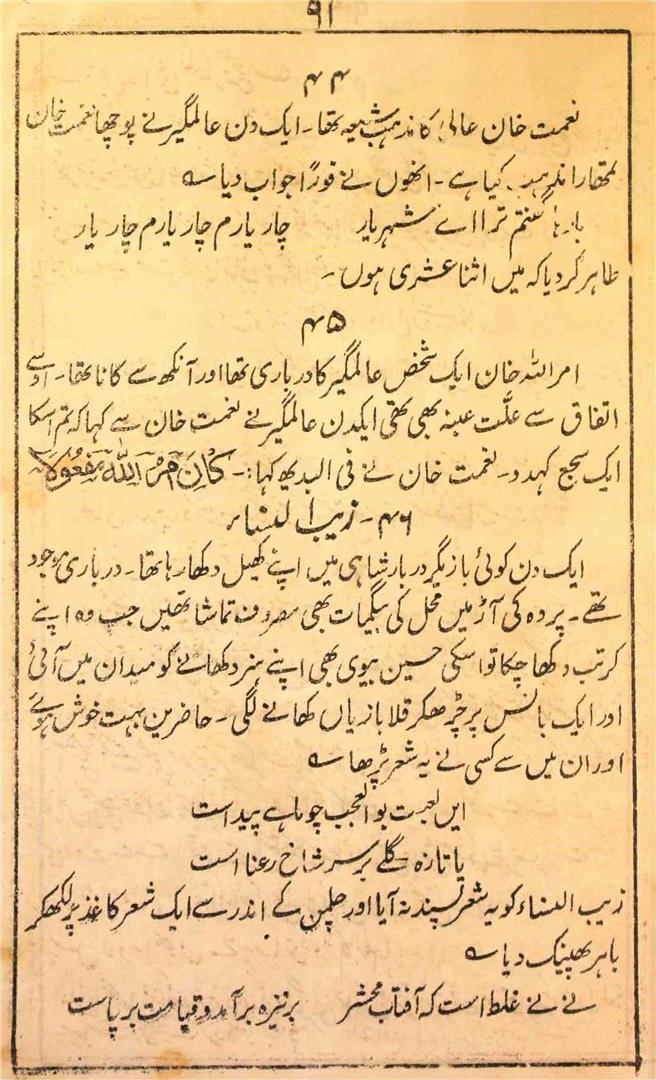 ۹۱
۴۴
نعمت خان عالی کا مذہب شیعہ تھا۔ ایک دن عالمگیر نے پوچھا نعمت خان
تمھارا مذہب کیا ہے۔ انھوں نے فورًا جواب دیا ؎
بارہا گفتم ترا اے شہریار چار یارم چار یارم چار یار
ظاہر کر دیا کہ میں اثنا عشری ہوں۔
۴۵
امر اللہ خان ایک شخص عالمگیر کا درباری تھا اور آنکھ سے کانا تھا۔ اوسے
اتفاق سے علّت عبنہ بھی تھی ایکدن عالمگیر نے نعمت خان سے کہا کہ تم اسکا
ایک سجع کہدو۔ نعمت خان نے فی البدیہہ کہا:۔ کَانَ اَمْرُ اللّٰہِ مَفْعُوْلَا
۴۶۔ زیب النساء
ایک دن کوئی بازیگر دربار شاہی میں اپنے کھیل دکھا رہا تھا۔ درباری موجود
تھے۔ پردہ کی آڑ میں محل کی بیگمات بھی مصروف تماشا تھیں جب وہ اپنے
کرتب دکھا چکا تو اسکی حسین بیوی بھی اپنے ہنر دکھانے کو میدان میں آئی
اور ایک بانس پر چڑھکر قلابازیاں کھانے لگی۔ حاضرین بہت خوش ہوئے
اور ان میں سے کسی نے یہ شعر پڑھا ؎
ایں لعبت بوالعجب چو ماہے پیداست
یا تازہ گلے برسر شاخ رعنا است
زیب النساء کو یہ شعر پسند نہ آیا اور چلمن کے اندر سے ایک شعر کاغذ پر لکھکر
باہر پھینک دیا ؎
نے نے غلط است کہ آفتاب محشر بر نیزہ برآمد و قیامت برپاست